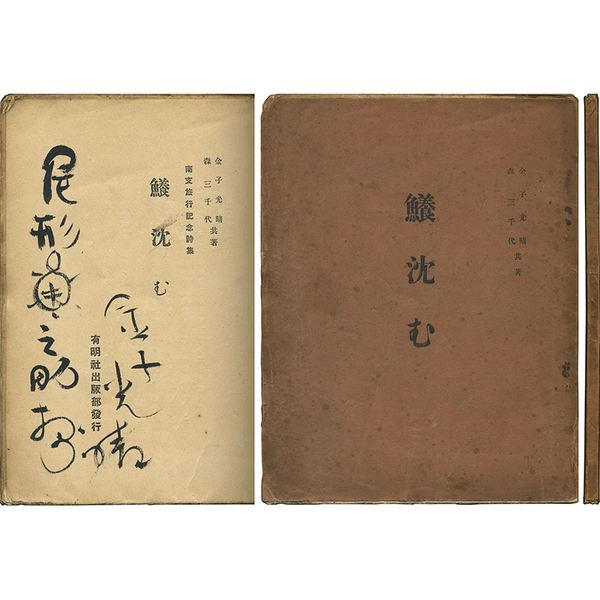 金子光晴
森三千代共著
南支旅行記念詩集
鱶沈む
有明社出版部發行
尾形亀之助様
金子光晴
金子光晴
森三千代共著
鱶沈む